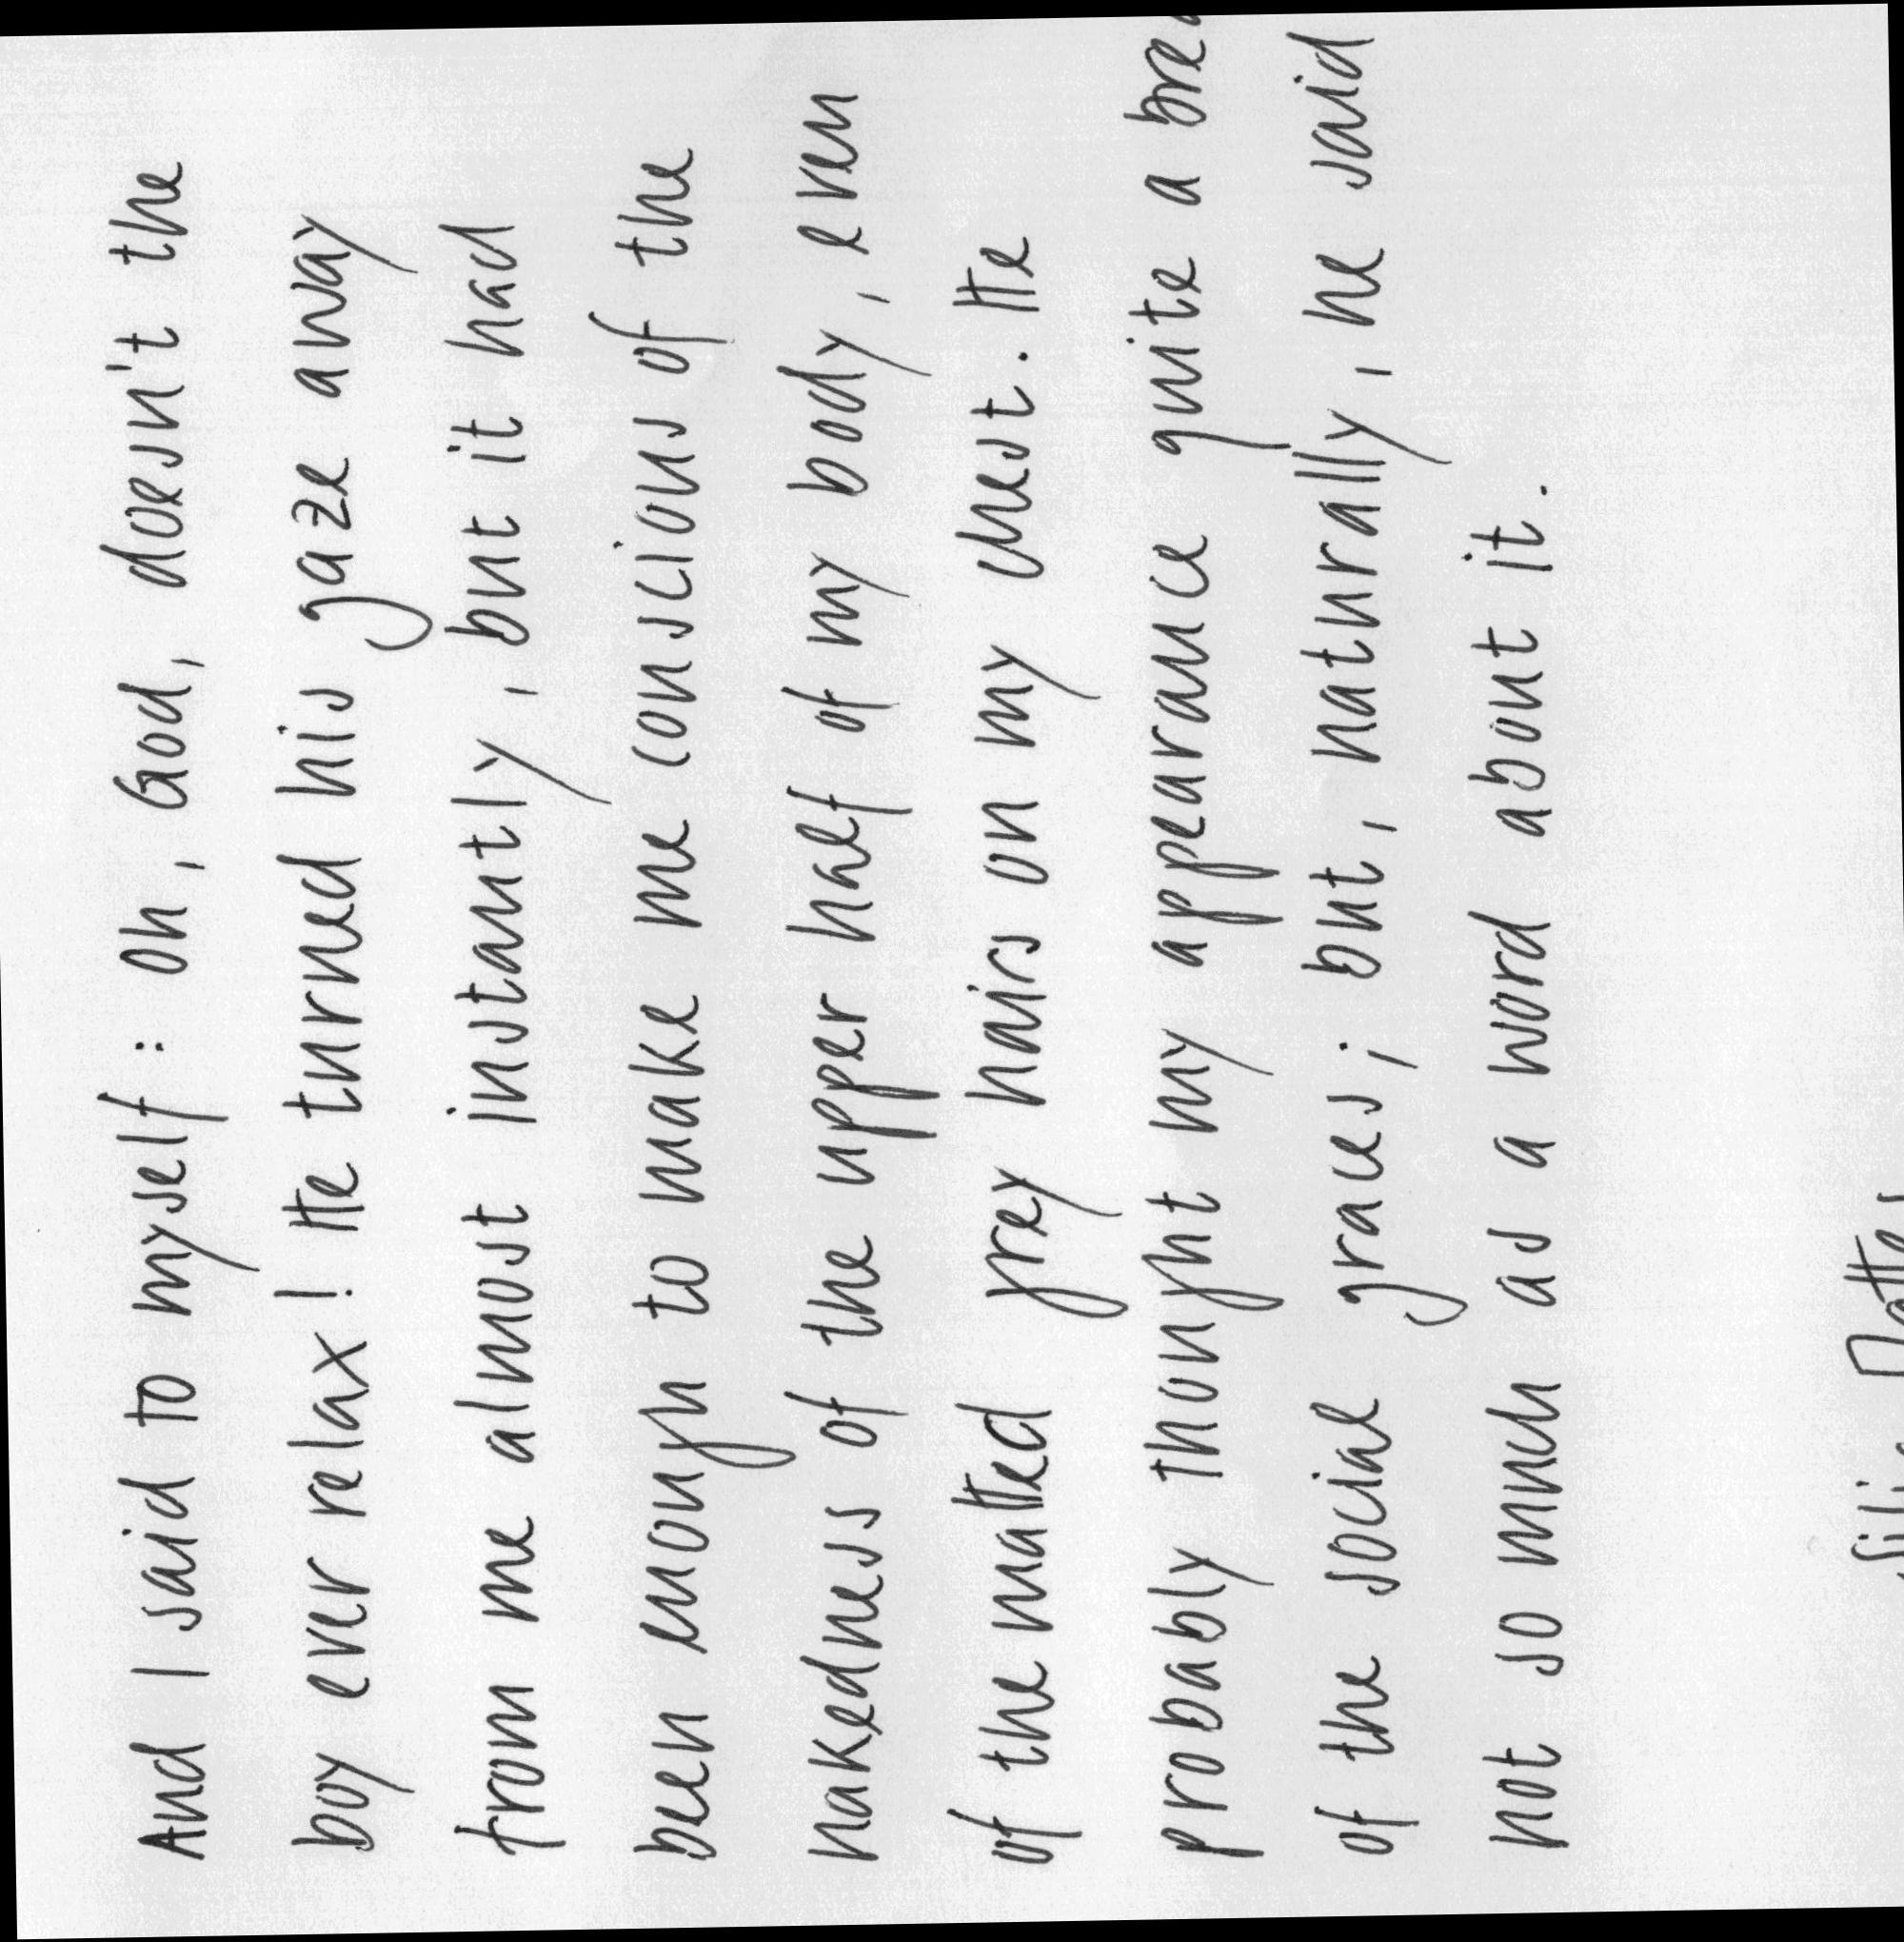 And I said to myself : Oh, God, doesn't the
boy ever relax! He turned his gaze away
from me almost instantly, but it had
been enough to make me conscious of the
nakedness of the upper half of my body, even
of the matted grey hairs on my chest. He
probably thought my appearance quite a
of the social graces; but, naturally, he said
not so much as a word about it.